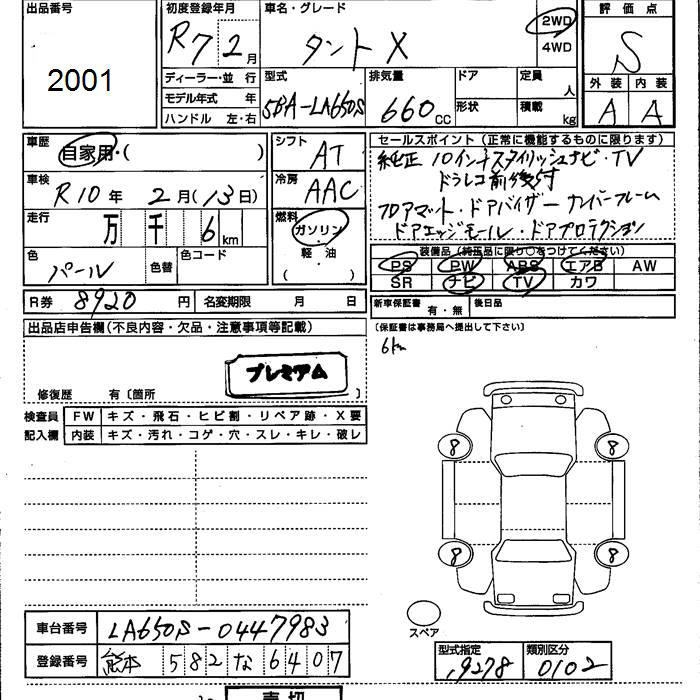 出品番号 初度登録年月 車名・グレード 評価点
2001 R7 2月 タント X 2WD 4WD S
ディーラー・並 行 型式 排気量 ドア 定員 人 外装 内装
モデル年式 年 5BA-LA650S 660cc 形状 積載 kg A A
ハンドル 左・右
車歴 シフト セールスポイント(正常に機能するものに限ります)
自家用・( ) AT 純正 10インチスタイリッシュナビ・TV
車検 冷房 ドラレコ前後付
R10年 2月(13日) AAC フロアマット・ドアバイザー ナンバーフレーム
走行 燃料 ドアエッジモール・ドアプロテクション
万 千 6km ガソリン 装備品(純正品に限り○をつけてください)
色 色替 色コード 軽・油 PS PW ABS エアB AW
パール ( ) SR ナビ TV カワ
R券 8920円 名変期限 月 日 新車保証書 有・無 後日品
出品店申告欄(不良内容・欠品・注意事項等記載) (保証書は事務局へ提出して下さい)
6km
プレミアム
修復歴 有〔箇所 〕
検査員 FW キズ・飛石・ヒビ割・リペア跡・X要
記入欄 内装 キズ・汚れ・コゲ・穴・スレ・キレ・破レ
8 8
8 8
スペア
車台番号 LA650S-0447983
登録番号 熊本 582 な 6407
型式指定 類別区分
19278 0102
売切